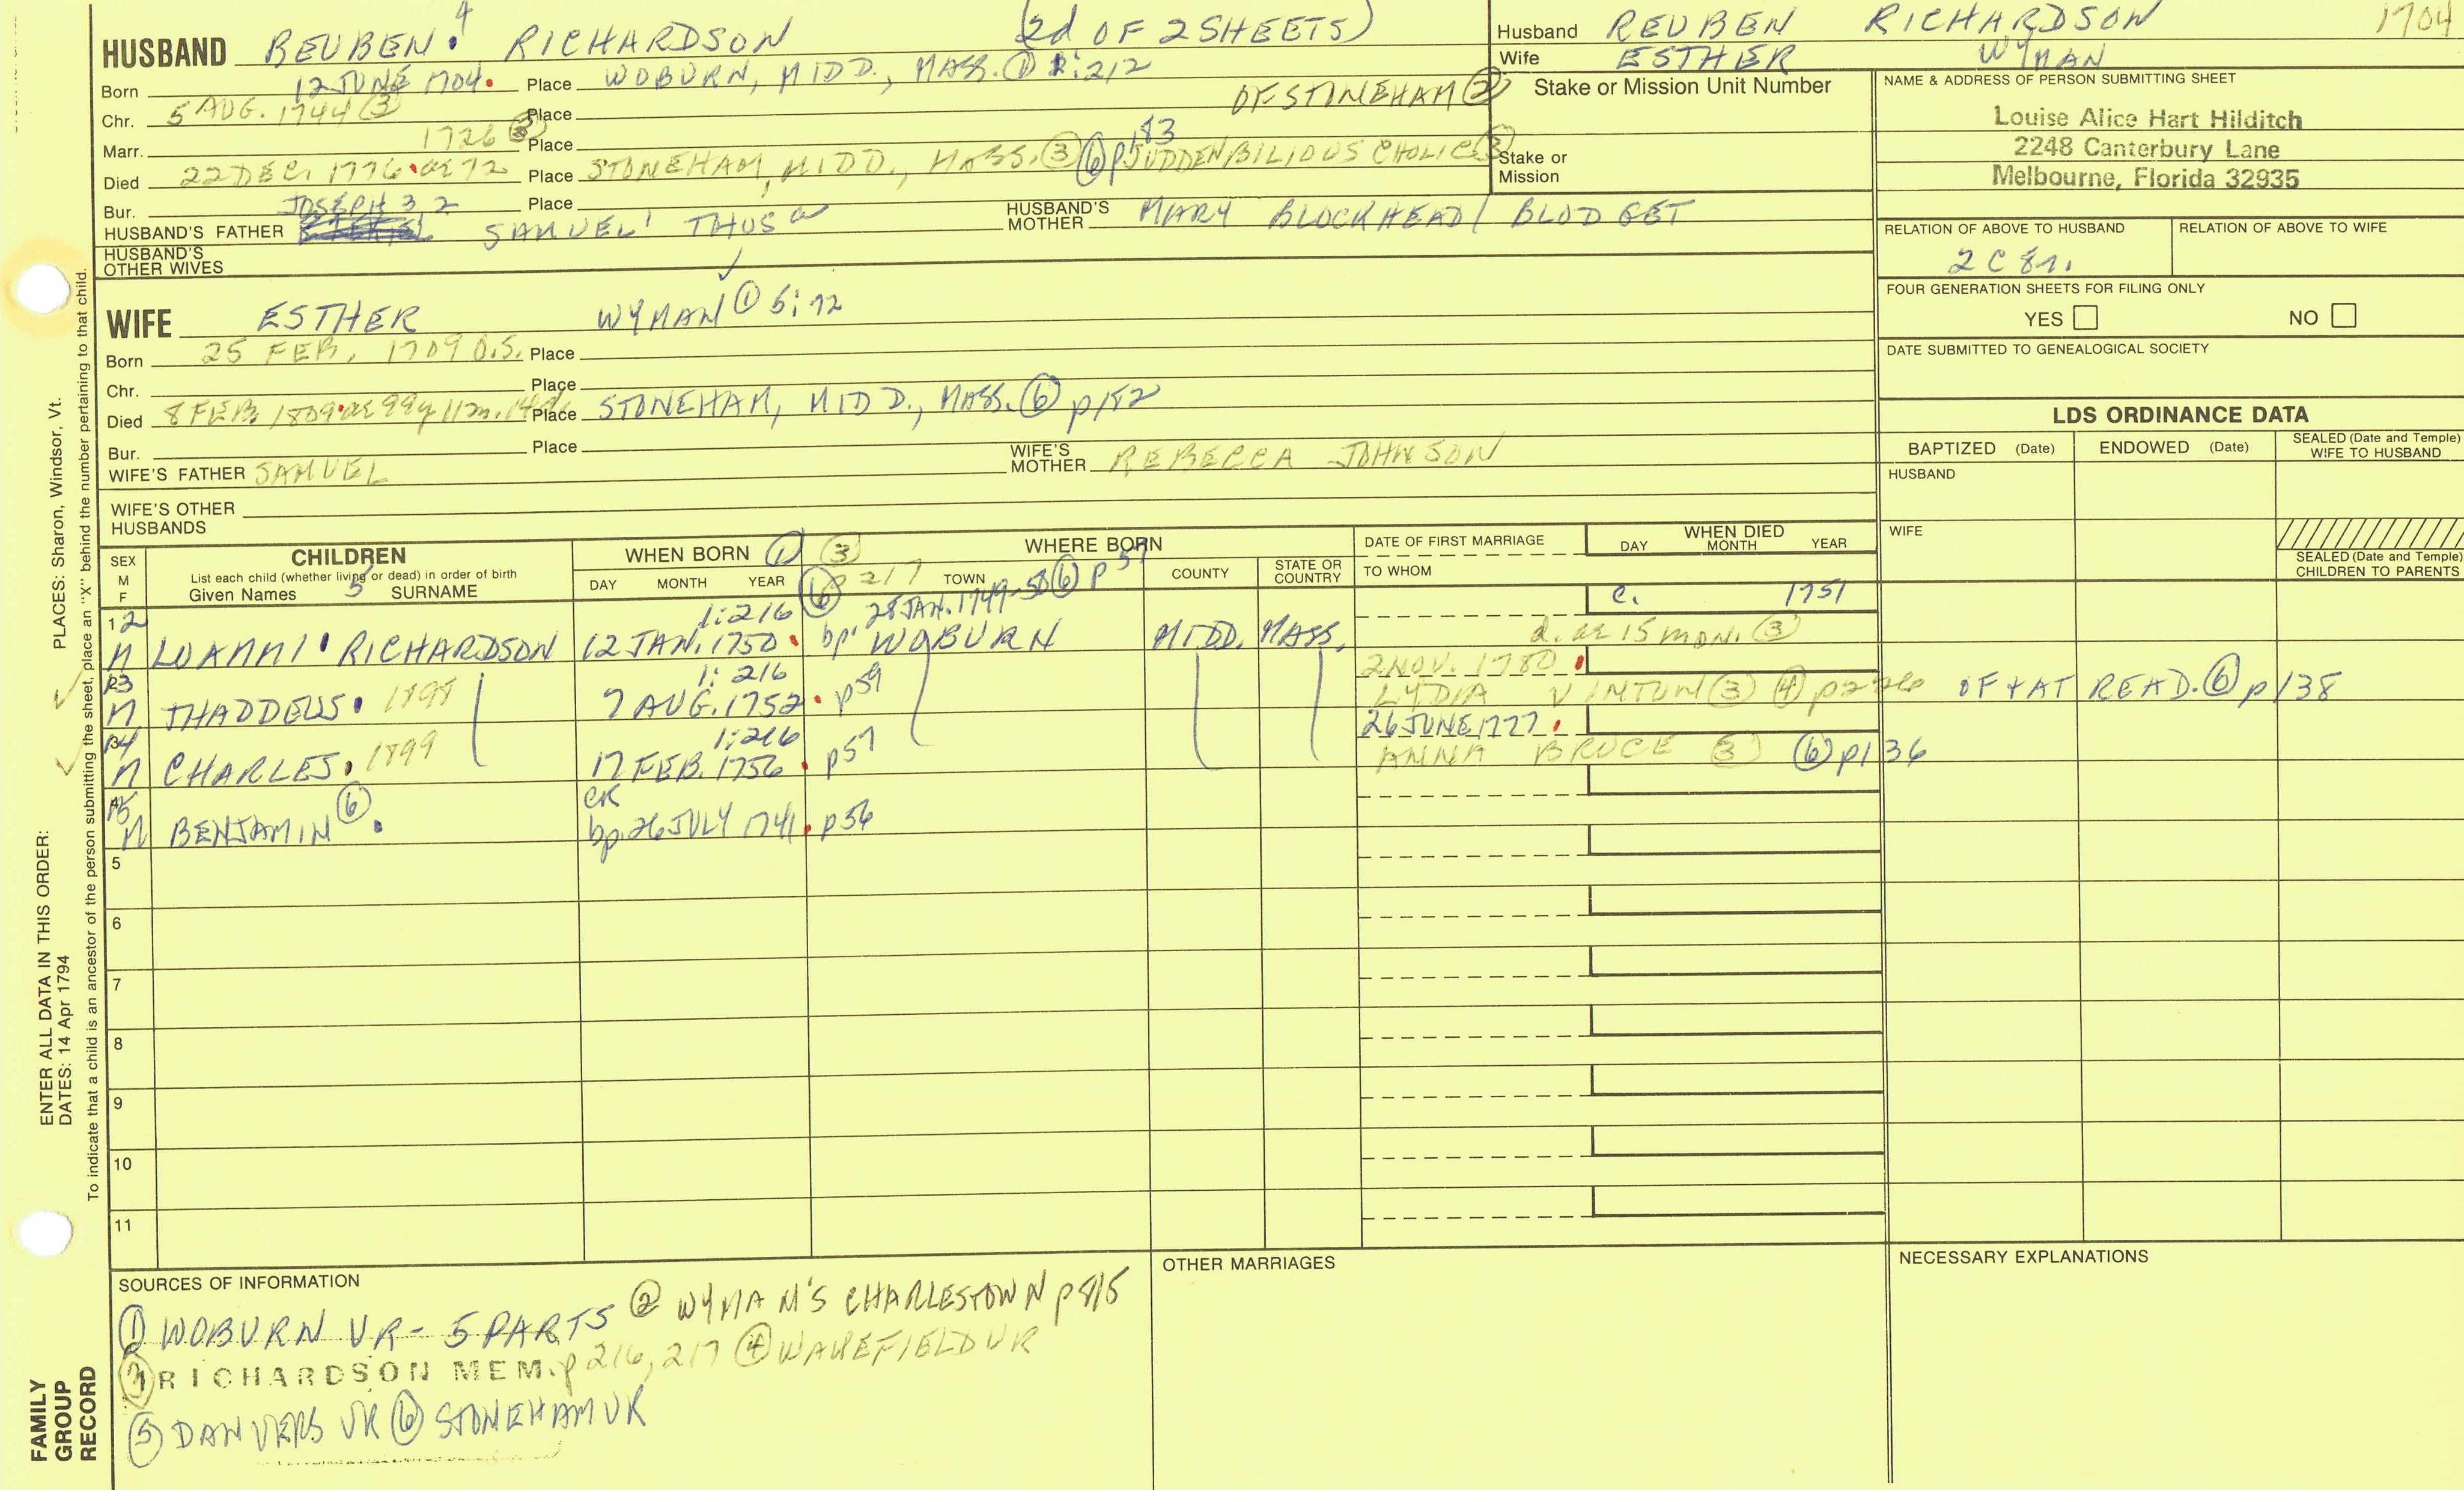 HUSBAND REUBEN 4 RICHARDSON (2d OF 2 SHEETS)
Born 12 JUNE 1704. Place WOBURN, MIDD., MASS. ① 1:212
OF STONEHAM ②
Chr. 5 AUG. 1744 ③ Place
Marr. 1726 ③ Place
Died 22 DEC. 1776. ae 72 Place STONEHAM, MIDD., MASS. ③ ⑥ p183 SUDDEN BILIOUS CHOLIC ③
Bur. Place
HUSBAND'S FATHER JOSEPH 3 2 SAMUEL 1 THOS a HUSBAND'S MOTHER MARY BLOCKHEAD / BLODGET
HUSBAND'S OTHER WIVES
WIFE ESTHER WYMAN ① 5:72
Born 25 FEB. 1709 O.S. Place
Chr. Place
Died 8 FEB. 1809. ae 99y 11m. 14d. Place STONEHAM, MIDD., MASS. ⑥ p182
Bur. Place
WIFE'S FATHER SAMUEL WIFE'S MOTHER REBECCA JOHNSON
WIFE'S OTHER HUSBANDS
Husband REUBEN RICHARDSON 1704
Wife ESTHER WYMAN
Stake or Mission Unit Number
Stake or Mission
NAME & ADDRESS OF PERSON SUBMITTING SHEET
Louise Alice Hart Hilditch
2248 Canterbury Lane
Melbourne, Florida 32935
RELATION OF ABOVE TO HUSBAND RELATION OF ABOVE TO WIFE
2 C 8r.
FOUR GENERATION SHEETS FOR FILING ONLY
YES NO
DATE SUBMITTED TO GENEALOGICAL SOCIETY
LDS ORDINANCE DATA
BAPTIZED (Date) ENDOWED (Date) SEALED (Date and Temple) WIFE TO HUSBAND
HUSBAND
WIFE
SEALED (Date and Temple) CHILDREN TO PARENTS
SEX M F
CHILDREN
List each child (whether living or dead) in order of birth
Given Names 5 SURNAME
WHEN BORN ① ③
DAY MONTH YEAR ⑥ p 217
WHERE BORN
TOWN COUNTY STATE OR COUNTRY
DATE OF FIRST MARRIAGE
TO WHOM
WHEN DIED
DAY MONTH YEAR
1 12 1:216 28 JAN. 1749-50 ⑥ p 57 c. 1751
M LOAMMI. RICHARDSON 12 JAN. 1750. bp. WOBURN MIDD. MASS. d. ae 15 mon. ③
13 1:216 2 NOV. 1780.
M THADDEUS. 1898 7 AUG. 1752. p59 LYDIA VINTUN ③ ④ p226 OF & AT READ. ⑥ p138
14 1:216 26 JUNE 1777.
M CHARLES. 1899 17 FEB. 1756. p57 ANNA BRUCE ③ ⑥ p136
15 CR
M BENJAMIN ⑥. bp. 26 JULY 1741. p56
5
6
7
8
9
10
11
SOURCES OF INFORMATION
① WOBURN VR - 5 PARTS ② WYMAN'S CHARLESTOWN p 815
③ RICHARDSON MEM. p 216, 217 ④ WAKEFIELD VR
⑤ DANVERS VR ⑥ STONEHAM VR
OTHER MARRIAGES
NECESSARY EXPLANATIONS
ENTER ALL DATA IN THIS ORDER:
DATES: 14 Apr 1794 PLACES: Sharon, Windsor, Vt.
To indicate that a child is an ancestor of the person submitting the sheet, place an "X" behind the number pertaining to that child.
FAMILY GROUP RECORD